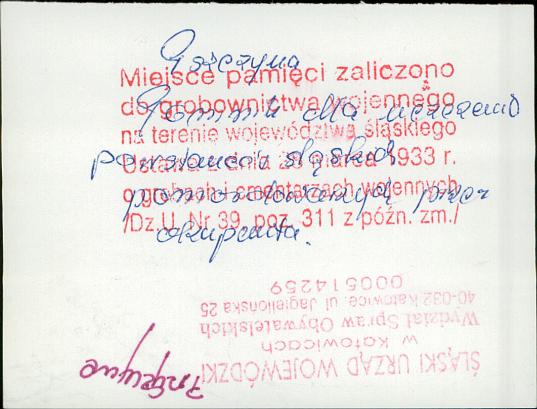 Pszczyna
Miejsce pamięci zaliczono
do grobownictwa wojennego
na terenie województwa śląskiego
Ustawa z dnia 28 marca 1933 r.
o grobach i cmentarzach wojennych
/Dz.U. Nr 39, poz. 311 z późn. zm./
Pomnik dla uczczenia
powstańców śląskich
pomordowanych przez
okupanta.
ŚLĄSKI URZĄD WOJEWÓDZKI
w Katowicach
Wydział Spraw Obywatelskich
40-032 Katowice, ul. Jagiellońska 25
000514259
Pszczyna